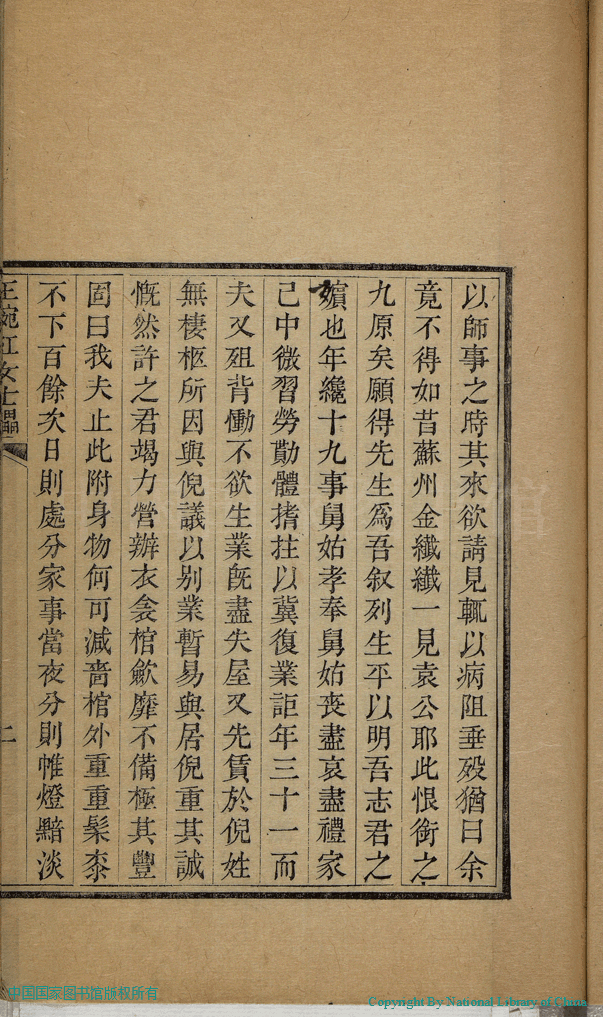 以師事之時其來欲請見輒以病阻垂歿猶曰余
竟不得如昔蘇州金纖纖一見袁公耶此恨銜之
九原矣願得先生爲吾叙列生平以明吾志君之
嬪也年纔十九事舅姑孝奉舅姑喪盡哀盡禮家
己中微習勞勩體揩拄以冀復業詎年三十一而
夫又殂背慟不欲生業旣盡失屋又先賃於倪姓
無棲柩所因與倪議以别業暫易與居倪重其誠
慨然許之君竭力營辦衣衾棺歛靡不備極其豐
固曰我夫止此附身物何可減嗇棺外重重髹桼
不下百餘次日則處分家事當夜分則帷燈黯淡
王宛江女士
二
中国国家图书馆版权所有
Copyright By National Library of China